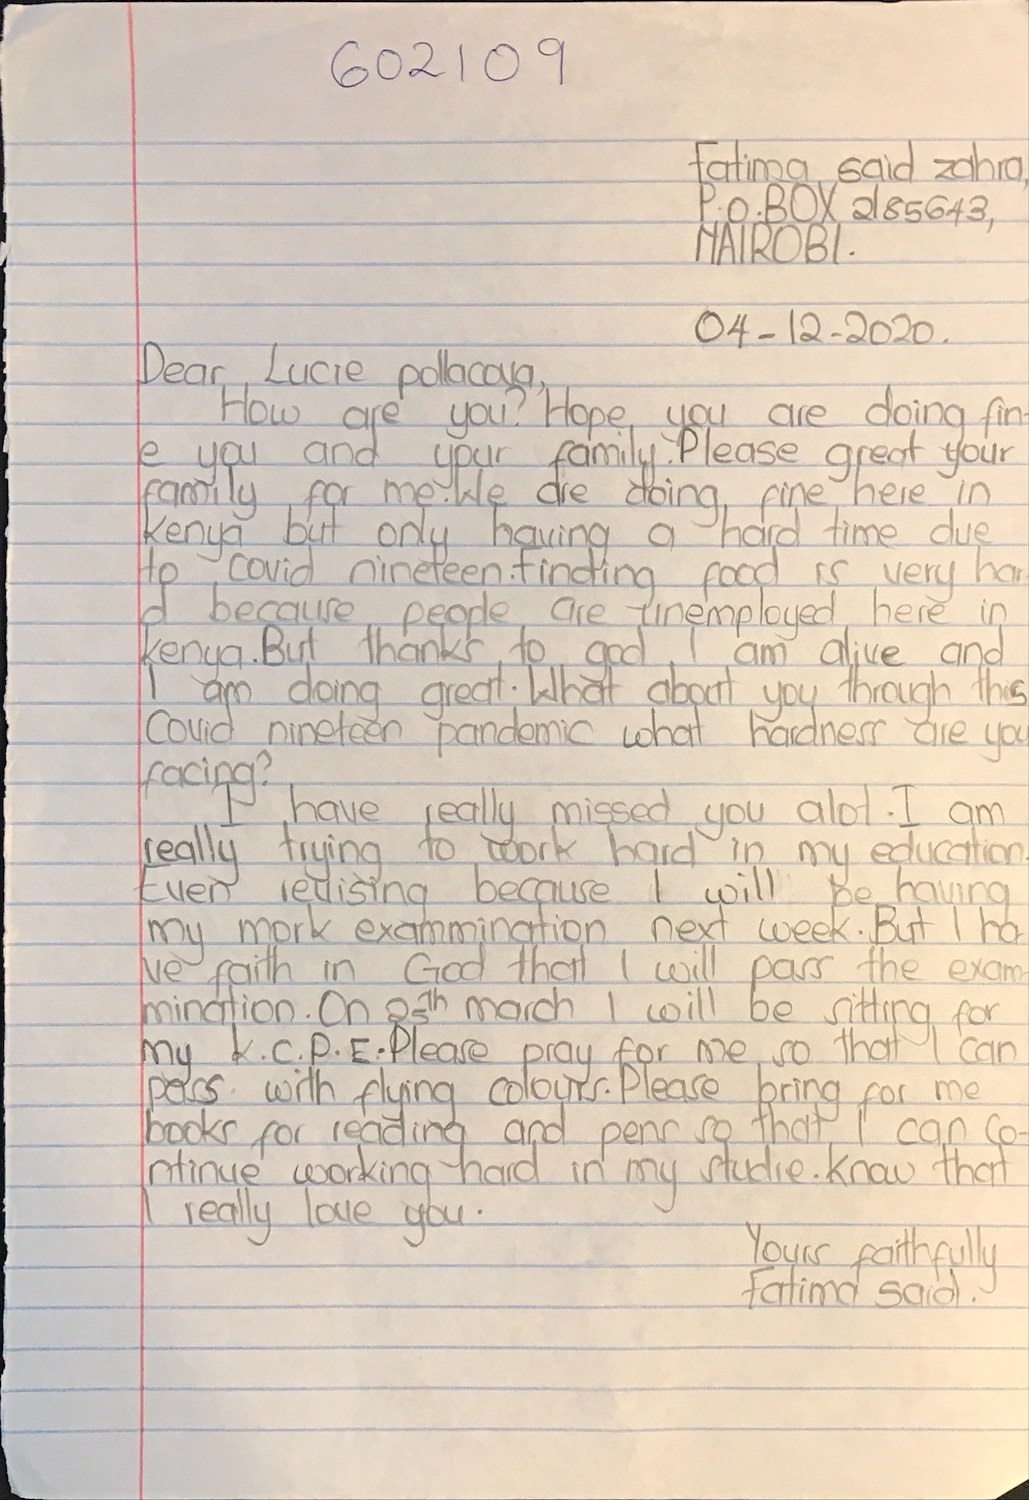 602109
Fatima said zahra,
P.O.BOX 2185643,
NAIROBI.
04-12-2020.
Dear Lucie pollacova,
How are you? Hope you are doing fin-
e you and your family. Please great your
family for me. We are doing fine here in
kenya but only having a hard time due
to covid nineteen. Finding food is very har-
d because people are unemployed here in
kenya. But thanks to god I am alive and
I am doing great. What about you through this
Covid nineteen pandemic what hardness are you
facing?
I have really missed you alot. I am
really trying to work hard in my education.
Even revising because I will be having
my mork exammination next week. But I ha-
ve faith in God that I will pass the exam-
mination. On 25th march I will be sitting for
my K.C.P.E. Please pray for me so that I can
pass with flying colours. Please bring for me
books for reading and pens so that I can co-
ntinue working hard in my studie. Know that
I really love you.
Yours faithfully
Fatima said.